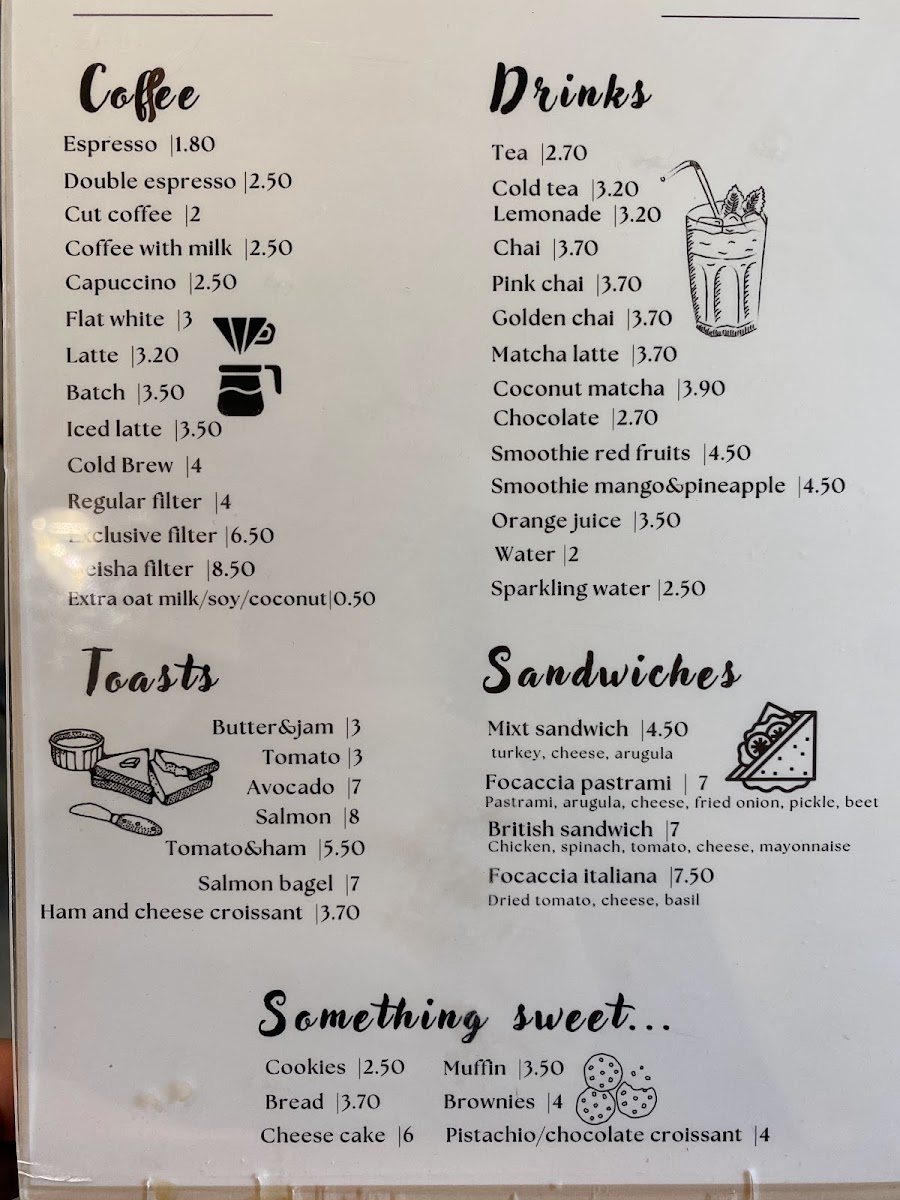 Coffee
Espresso |1.80
Double espresso |2.50
Cut coffee |2
Coffee with milk |2.50
Capuccino |2.50
Flat white |3
Latte |3.20
Batch |3.50
Iced latte |3.50
Cold Brew |4
Regular filter |4
Exclusive filter |6.50
filter |8.50
Extra oat milk/soy/coconut|0.50
Drinks
Tea |2.70
Cold tea |3.20
Lemonade |3.20
Chai |3.70
Pink chai |3.70
Golden chai |3.70
Matcha latte |3.70
Coconut matcha |3.90
Chocolate |2.70
Smoothie red fruits |4.50
Smoothie mango&pineapple |4.50
Orange juice |3.50
Water |2
Sparkling water |2.50
Toasts
Butter&jam |3
Tomato |3
Avocado |7
Salmon |8
Tomato&ham |5.50
Salmon bagel |7
Ham and cheese croissant |3.70
Sandwiches
Mixt sandwich |4.50
turkey, cheese, arugula
Focaccia pastrami | 7
Pastrami, arugula, cheese, fried onion, pickle, beet
British sandwich |7
Chicken, spinach, tomato, cheese, mayonnaise
Focaccia italiana |7.50
Dried tomato, cheese, basil
Something sweet...
Cookies |2.50
Bread |3.70
Cheese cake |6
Muffin |3.50
Brownies |4
Pistachio/chocolate croissant |4